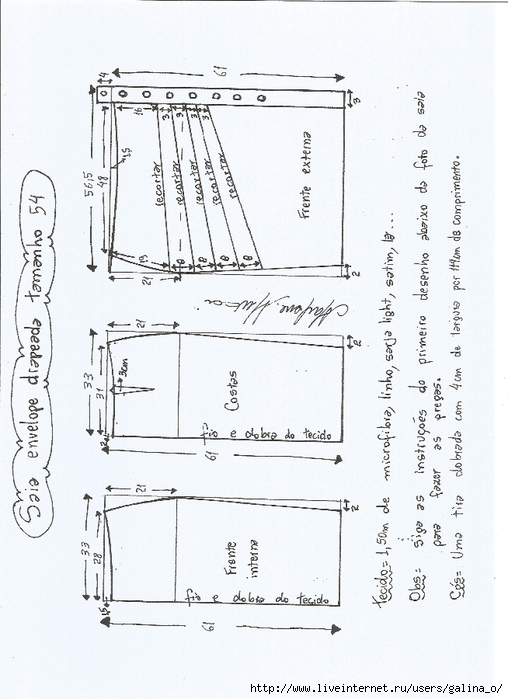 Saia envelope drapeada tamanho 54
33
28
1,5
21
61
2
Frente
interna
fio e dobra do tecido
33
31
2
3cm
21
61
2
Costas
fio e dobra do tecido
56,5
48
4
61
3
16
3
3
3
3
1,5
13
21
8
8
8
8
2
recortar
recortar
recortar
recortar
Frente externa
Marlene Mukai
Tecido= 1,50m de microfibra, linho, sarja light, satim, lã...
Obs= siga as instruções do primeiro desenho abaixo da foto da saia
para fazer as pregas.
Cós= Uma tira dobrada com 4cm de largura por 114cm de comprimento.
http://www.liveinternet.ru/users/galina_o/